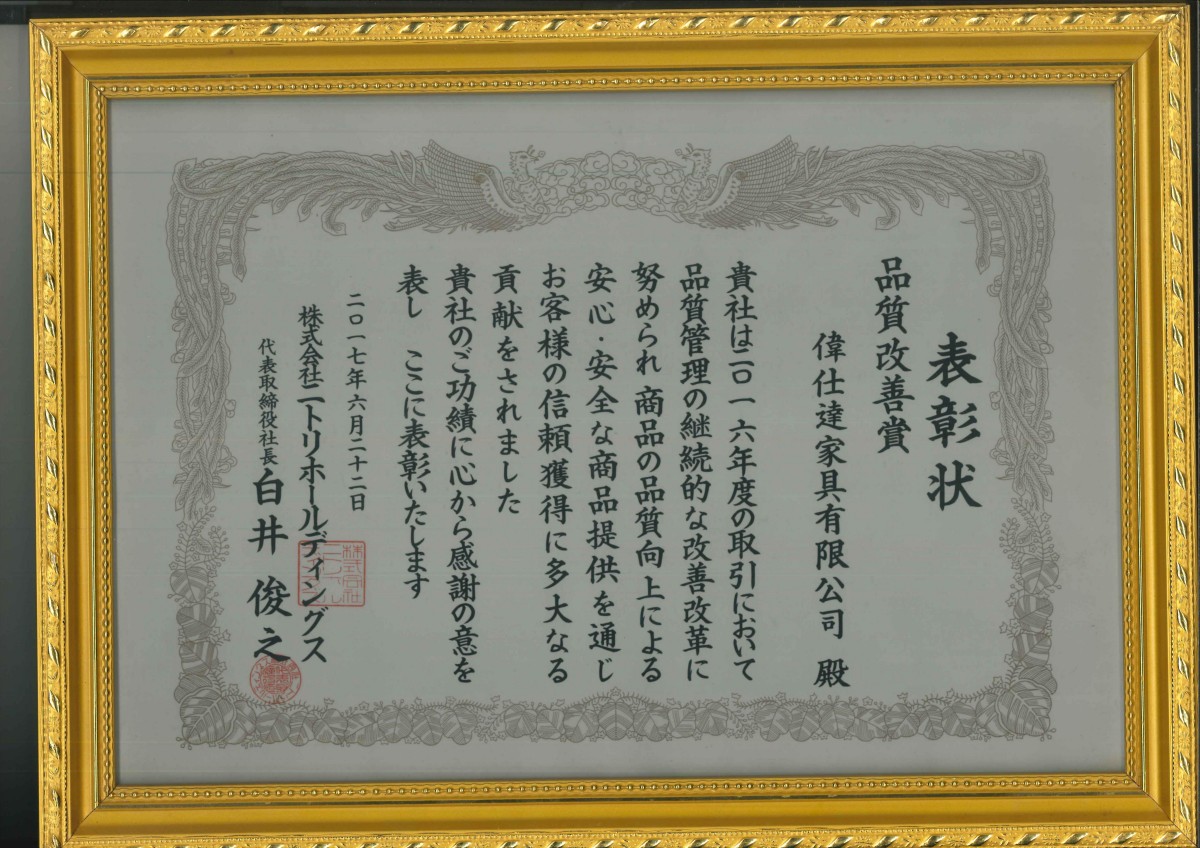 表彰状
品質改善賞
偉仕達家具有限公司 殿
貴社は二〇一六年度の取引において
品質管理の継続的な改善改革に
努められ 商品の品質向上による
安心・安全な商品提供を通じ
お客様の信頼獲得に多大なる
貢献をされました
貴社のご功績に心から感謝の意を
表し ここに表彰いたします
二〇一七年六月二十二日
株式会社ニトリホールディングス
代表取締役社長 白井 俊之